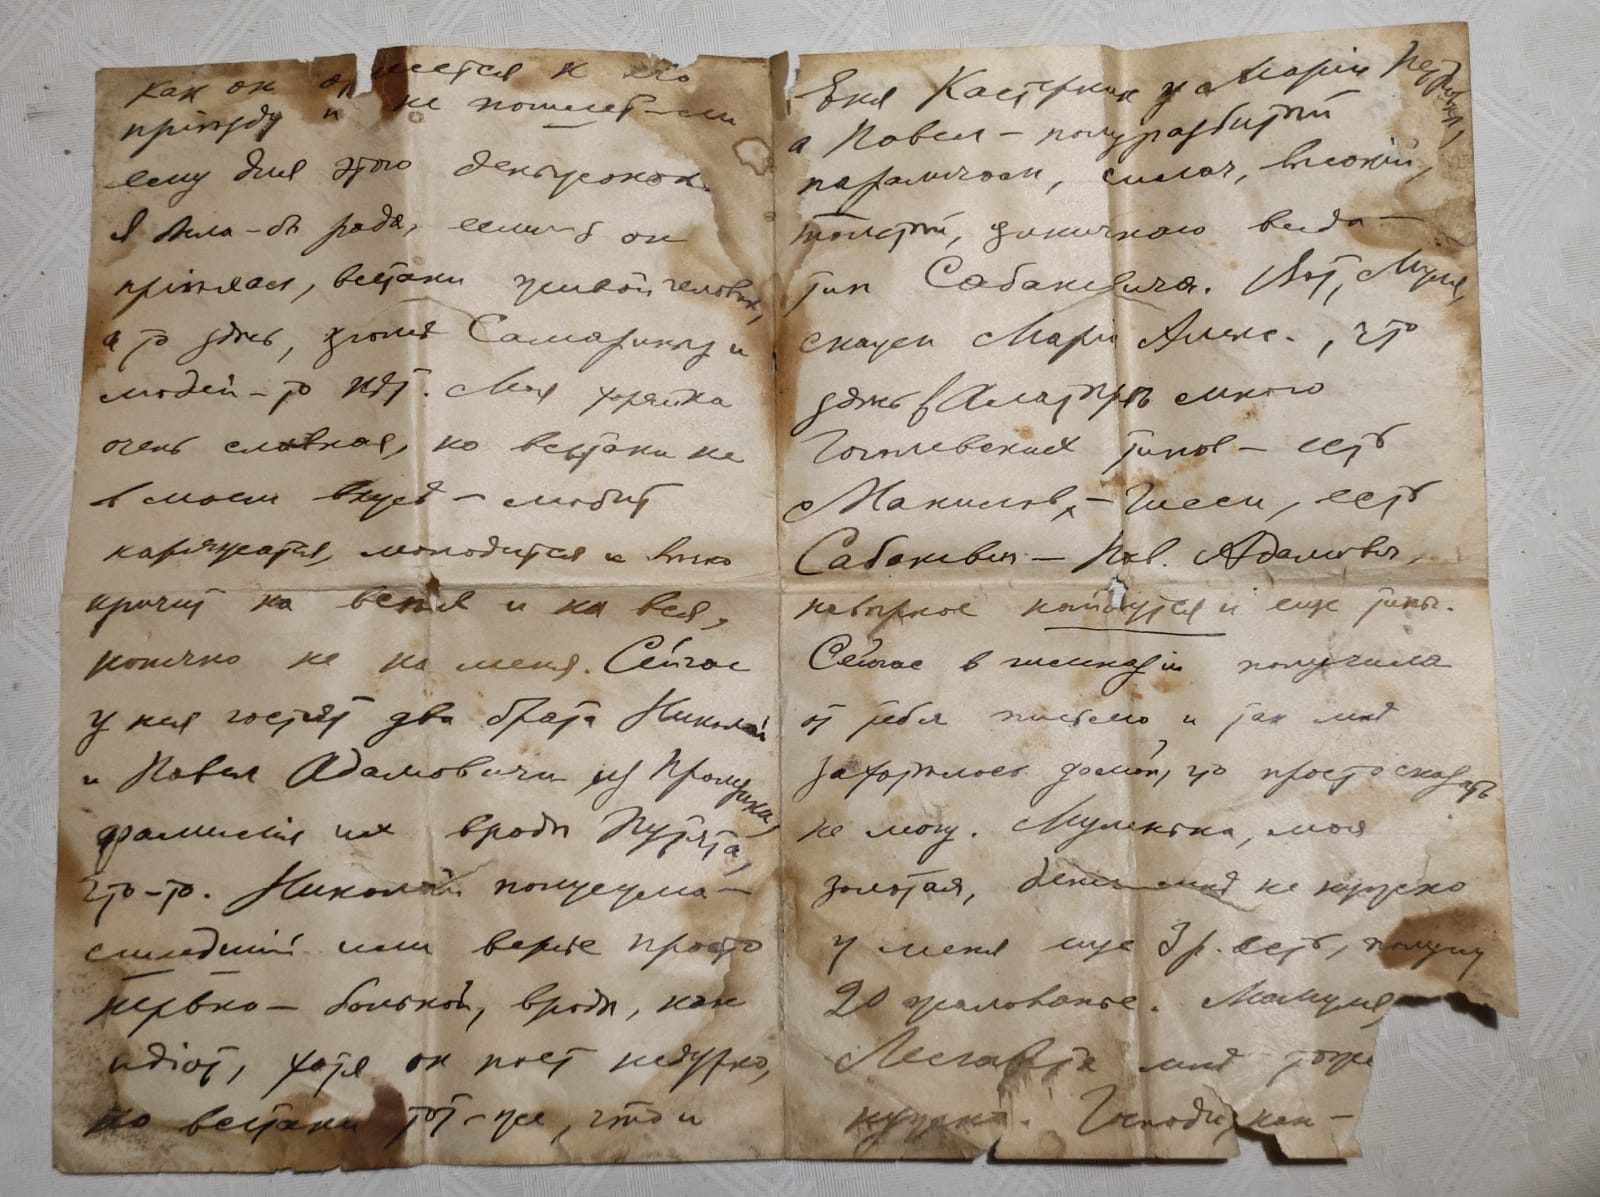 как он от сется к его
прiѣзду и не пошлет-ли
ему для этого деньжонок.
Я была-бы рада, если-б он
прiѣхал, всетаки живой человѣк,
а то здѣсь, кромѣ Самариных и
людей-то нѣт. Моя хозяйка
очень славная, но всетаки не
в моем вкусѣ — любит
наряжатся, молодится и
кричит на и на вся,
конечно не на меня. Сейчас
у нея гостят два брата Николай
и Павел Адамовичи из
фамилiя их вродѣ Путята,
что-то. Николай полусума-
сшедшiй или вернѣе просто
нервно-больной, вродѣ, как
идiот, хотя он поет недурно,
но всетаки тот-же, что и
Еня у Марiи Петровны,
а Павел — полуразбитый
параличом, силач, высокiй,
толстый, циничного вида —
тип Сабакевича. Вот, Муля,
скажи Марiи Алекс., что
здѣсь в Алатырѣ много
Гоголевских типов — есть
Манилов, — Гисси, есть
Сабакевич — Пав. Адамович,
навѣрное найдутся и еще типы.
Сейчас в гимназiи получила
от тебя письмо и так мнѣ
захотѣлось домой, что просто сказать
не могу. Мулечка, моя
золотая, денег мнѣ не нужно
у меня еще 3 р. есть, получу
20 жалованье. Мамуля,
мнѣ тоже
нужно. Господи, как-